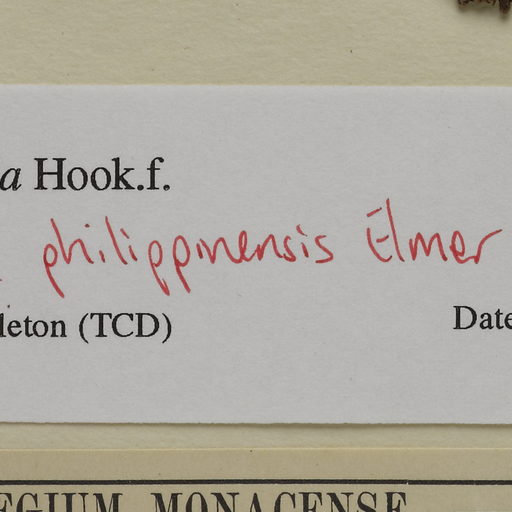 a Hook.f.
philippinensis Elmer
leton (TCD)
Date
EGIUM MONACENSE